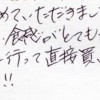 めて、いただきまし
食感がとても
行って直接買
!!